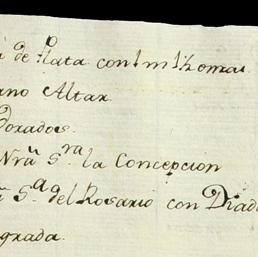 de Plata con
Altar
Dorados.
Nrã Sra la Concepcion
Sa. del Rosario con Diad
grada.